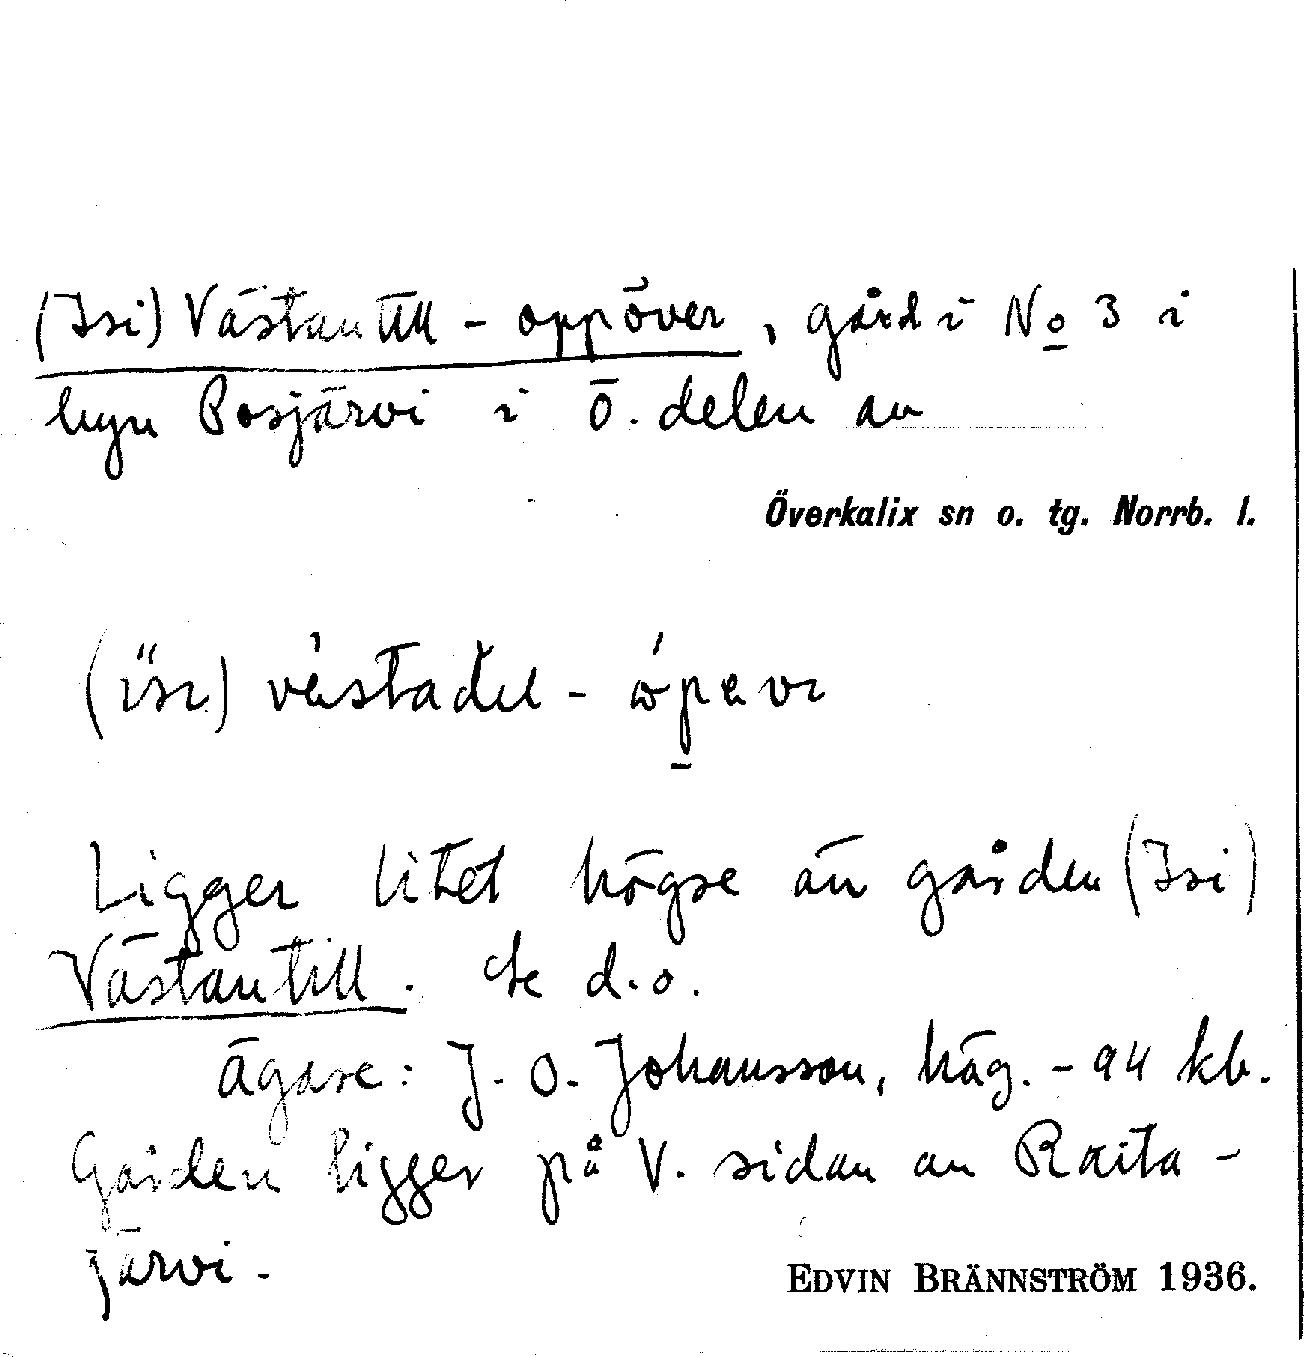 (Isi) Västantill - oppöver, gård i No 3 i
byn Posjärvi i Ö. delen av
Överkalix sn o. tg. Norrb. l.
Ligger litet högre än gården (Isi)
Västantill. Se d.o.
Ägare: J. O. Johansson, häg. - 94 kb.
Gården ligger på V. sidan av Raita-
järvi.
EDVIN BRÄNNSTRÖM 1936.